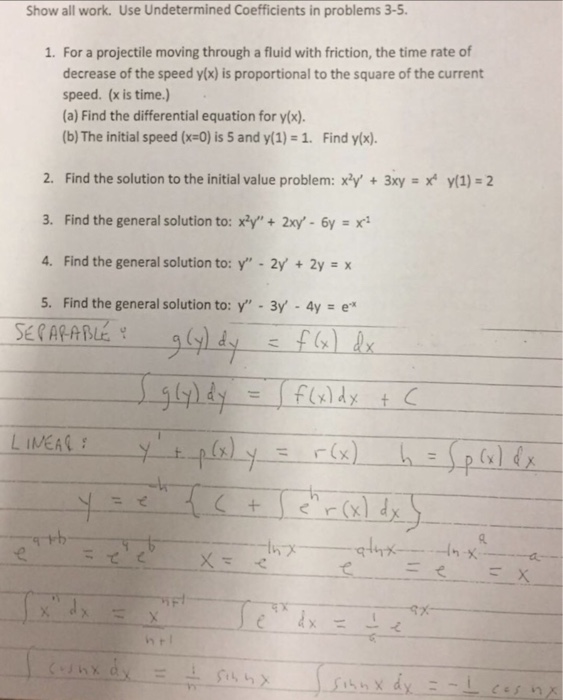 Show all work. Use Undetermined Coefficients in problems 3-5.
1. For a projectile moving through a fluid with friction, the time rate of
decrease of the speed y(x) is proportional to the square of the current
speed. (x is time.)
(a) Find the differential equation for y(x).
(b) The initial speed (x=0) is 5 and y(1) = 1. Find y(x).
2. Find the solution to the initial value problem: x²y' + 3xy = x⁴ y(1) = 2
3. Find the general solution to: x²y" + 2xy' - 6y = x⁻¹
4. Find the general solution to: y" - 2y' + 2y = x
5. Find the general solution to: y" - 3y' - 4y = e⁻ˣ
SEPARABLE: g(y) dy = f(x) dx
∫ g(y) dy = ∫ f(x) dx + C
LINEAR: y' + p(x) y = r(x) h = ∫p(x) dx
y = e^-h { C + ∫ e^h r(x) dx }
e^a+b = e^a e^b x = e^ln x e^a ln x = e^ln x^a = x^a
∫ x^n dx = x^n+1 / n+1 ∫ e^ax dx = 1/a e^ax
∫ cos nx dx = 1/n sin nx ∫ sin nx dx = -1 cos nx